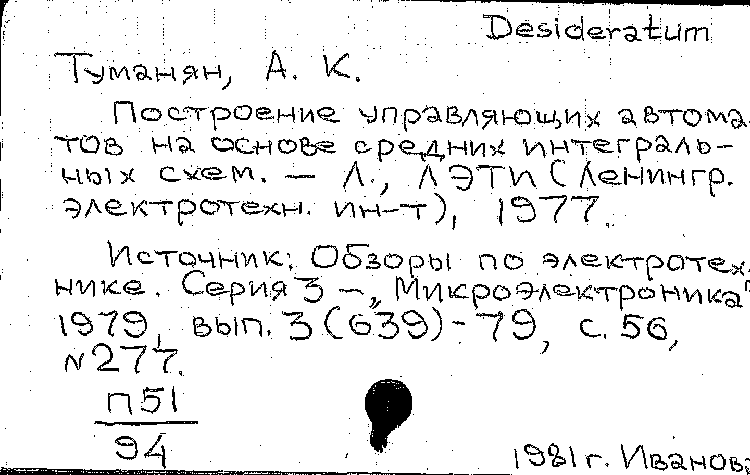 Desideratum
Туманян, А. К.
Построение управляющих автома-
тов на основе средних интеграль-
ных схем. — Л., ЛЭТИ (Ленингр.
электротехн. ин-т), 1977.
Источник: Обзоры по электротех-
нике. Серия 3 — „Микроэлектроника"
1979, вып. 3 (639) - 79, с. 56,
N277.
П51
94
1981г. Иванов.